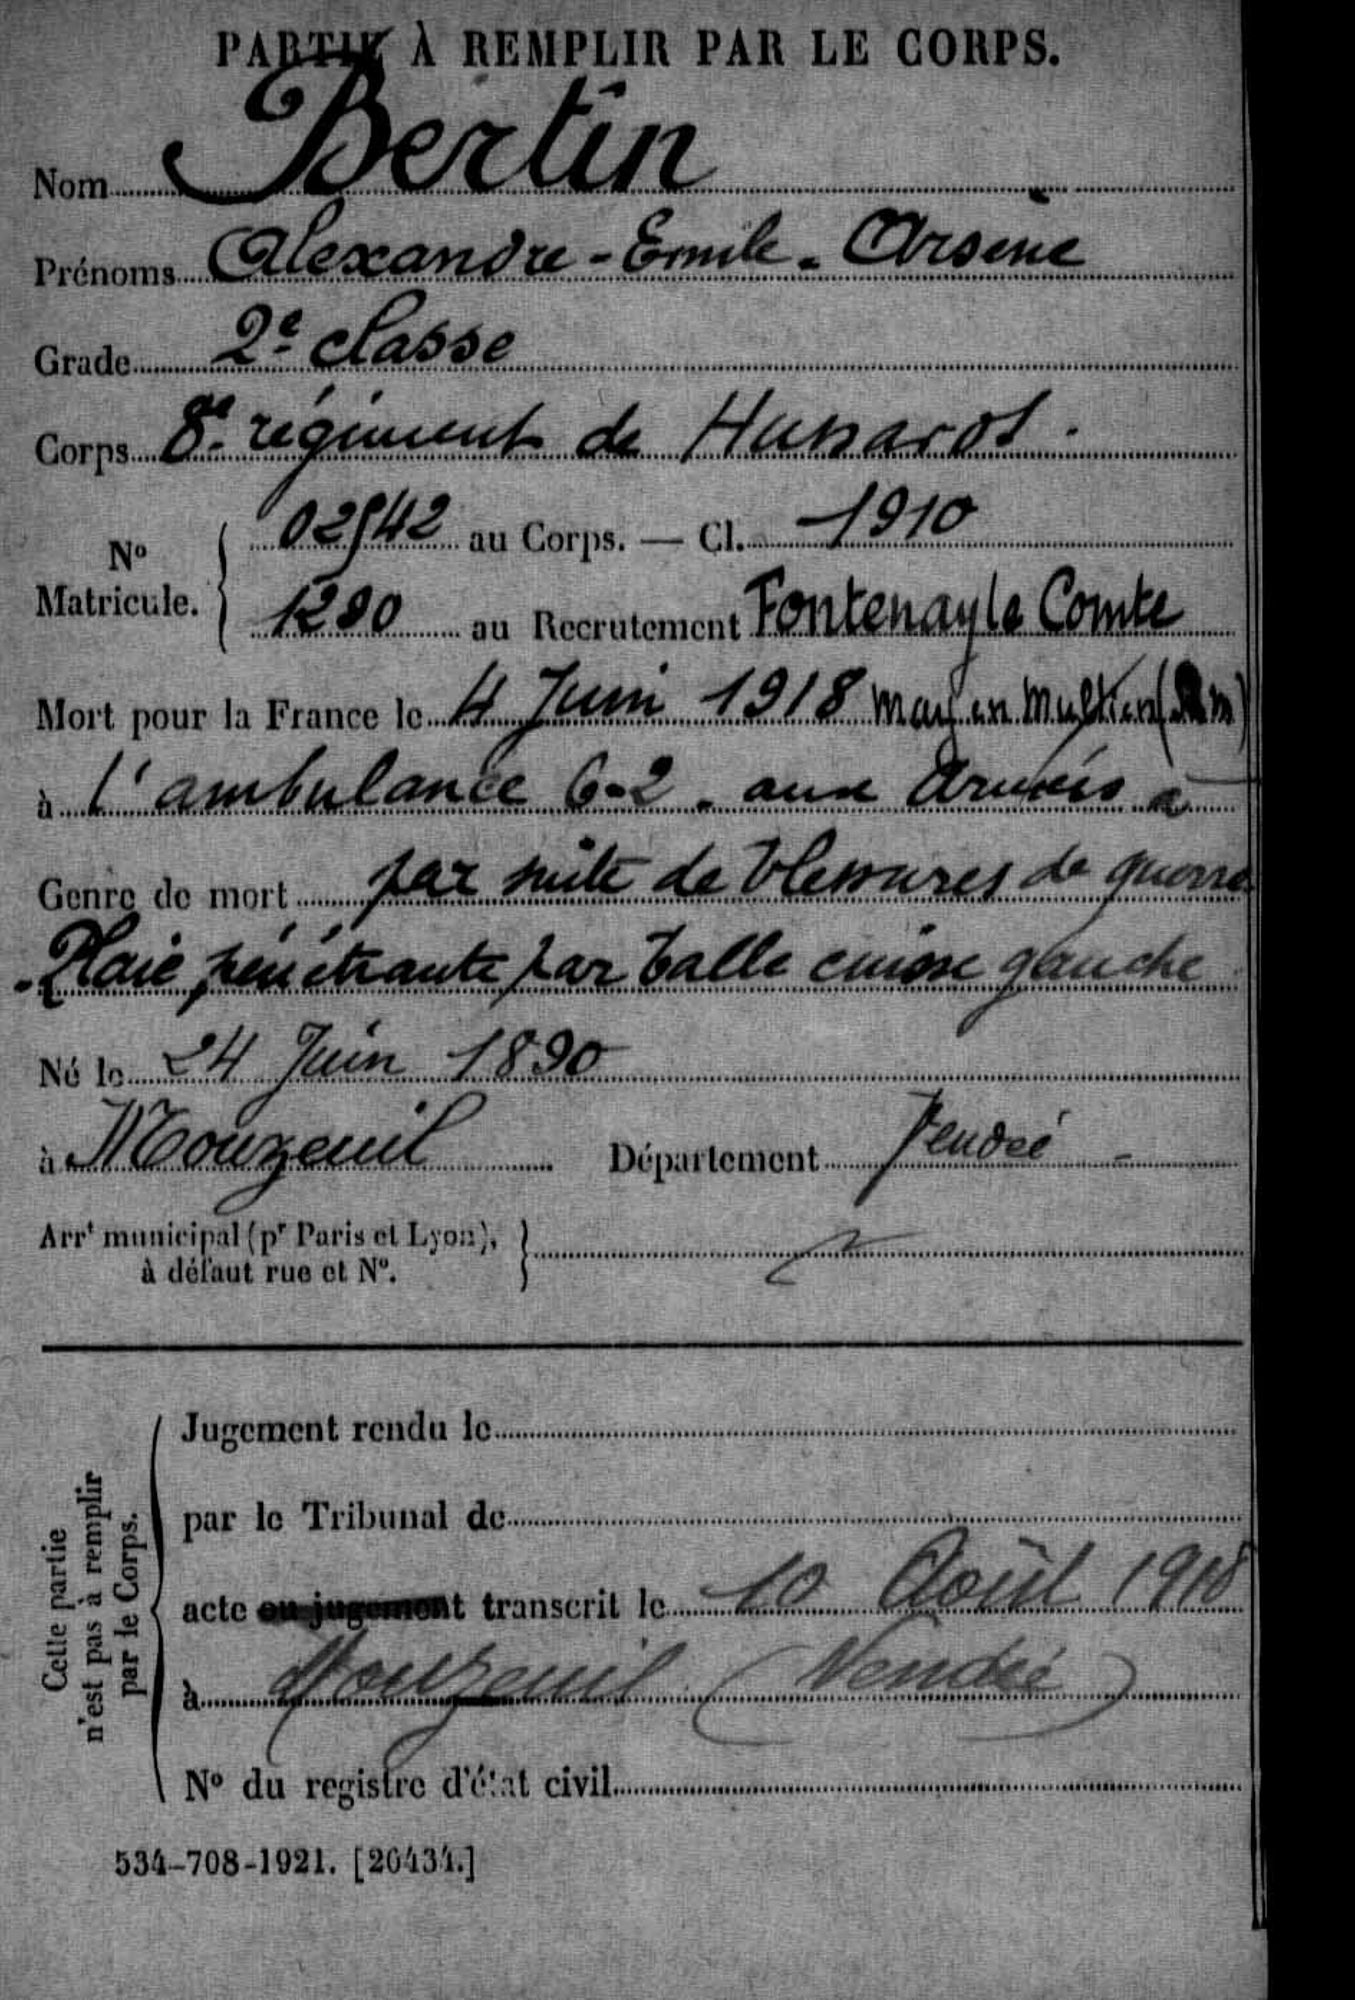 PARTIE À REMPLIR PAR LE CORPS.
Nom Bertin
Prénoms Alexandre - Emile - Arsène
Grade 2e classe
Corps 8e régiment de Hussards.
No Matricule. { 02542 au Corps. — Cl. 1910
1290 au Recrutement Fontenay le Comte
Mort pour la France le 4 Juin 1918 May en Multien (S m)
à l'ambulance 6-2. aux Armées à
Genre de mort par suite de blessures de guerre
- Plaie pénétrante par balle cuisse gauche
Né le 24 Juin 1890
à Mouzeuil Département Vendée -
Arrt municipal (pr Paris et Lyon), }
à défaut rue et No.
Cette partie
n'est pas à remplir
par le Corps.
Jugement rendu le
par le Tribunal de
acte ou jugement transcrit le 10 Août 1918
à Mouzeuil (Vendée)
No du registre d'état civil
534-708-1921. [26434.]